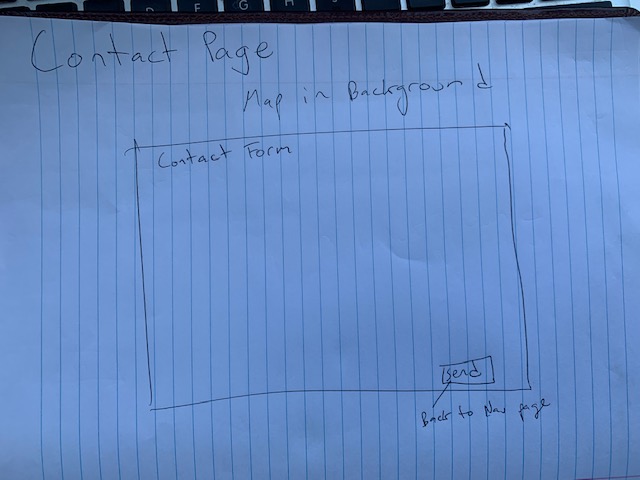 Contact Page
Map in Background
Contact Form
Send
Back to Nav page